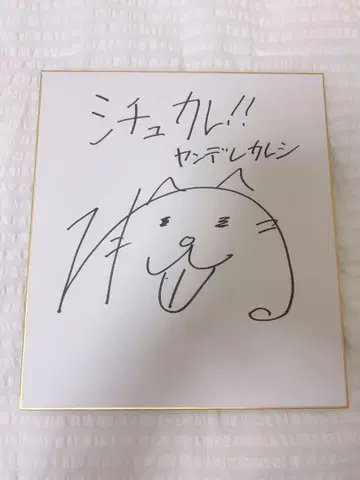 シチュカレ!!
ヤンデレカレシ